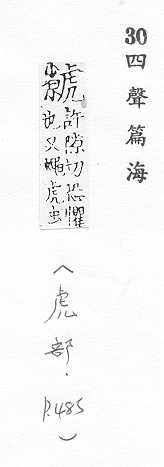 30四聲篇海
虩許隙切恐懼
也又蠅虎虫
(虎部·P.485)